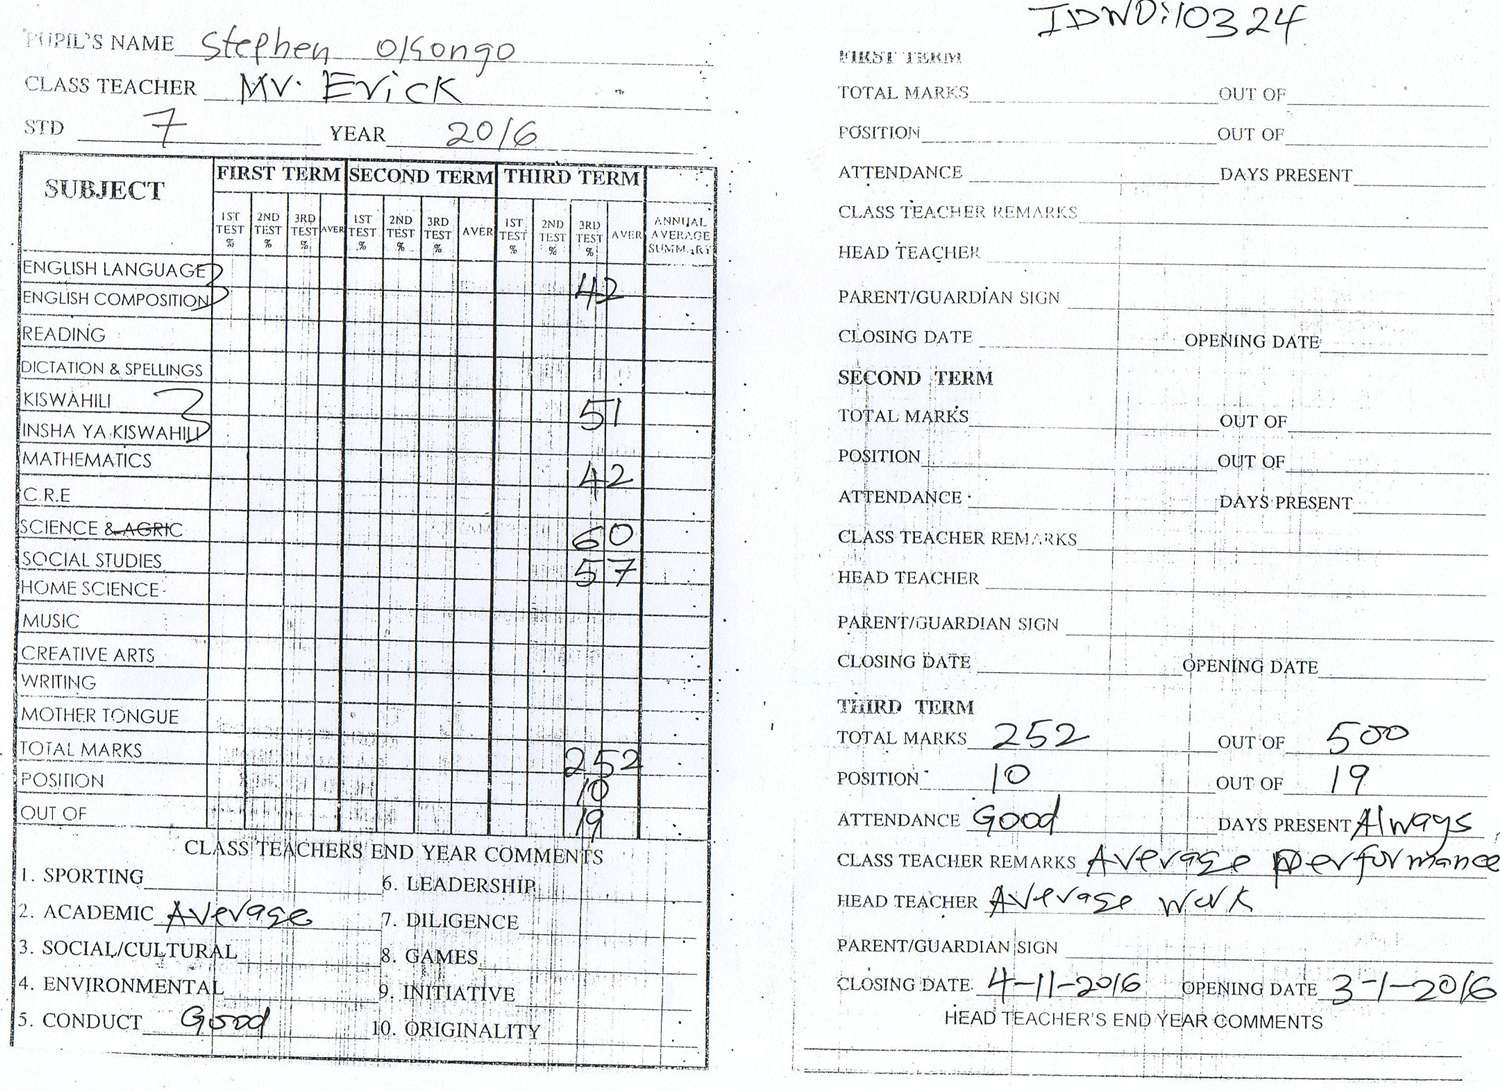 PUPIL'S NAME Stephen Olsongo
CLASS TEACHER Mr. Erick
STD 7 YEAR 2016
SUBJECT FIRST TERM SECOND TERM THIRD TERM
1ST TEST % 2ND TEST % 3RD TEST % AVER 1ST TEST % 2ND TEST % 3RD TEST % AVER 1ST TEST % 2ND TEST % 3RD TEST % AVER ANNUAL AVERAGE SUMMARY
ENGLISH LANGUAGE
ENGLISH COMPOSITION 42
READING
DICTATION & SPELLINGS
KISWAHILI
INSHA YA KISWAHILI 51
MATHEMATICS 42
C.R.E
SCIENCE & AGRIC 60
SOCIAL STUDIES 57
HOME SCIENCE
MUSIC
CREATIVE ARTS
WRITING
MOTHER TONGUE
TOTAL MARKS 252
POSITION 10
OUT OF 19
CLASS TEACHERS END YEAR COMMENTS
1. SPORTING 6. LEADERSHIP
2. ACADEMIC Average 7. DILIGENCE
3. SOCIAL/CULTURAL 8. GAMES
4. ENVIRONMENTAL 9. INITIATIVE
5. CONDUCT Good 10. ORIGINALITY
IDNO:10324
FIRST TERM
TOTAL MARKS OUT OF
POSITION OUT OF
ATTENDANCE DAYS PRESENT
CLASS TEACHER REMARKS
HEAD TEACHER
PARENT/GUARDIAN SIGN
CLOSING DATE OPENING DATE
SECOND TERM
TOTAL MARKS OUT OF
POSITION OUT OF
ATTENDANCE DAYS PRESENT
CLASS TEACHER REMARKS
HEAD TEACHER
PARENT/GUARDIAN SIGN
CLOSING DATE OPENING DATE
THIRD TERM
TOTAL MARKS 252 OUT OF 500
POSITION 10 OUT OF 19
ATTENDANCE Good DAYS PRESENT Always
CLASS TEACHER REMARKS Average performance
HEAD TEACHER Average work
PARENT/GUARDIAN SIGN
CLOSING DATE 4-11-2016 OPENING DATE 3-1-2016
HEAD TEACHER'S END YEAR COMMENTS